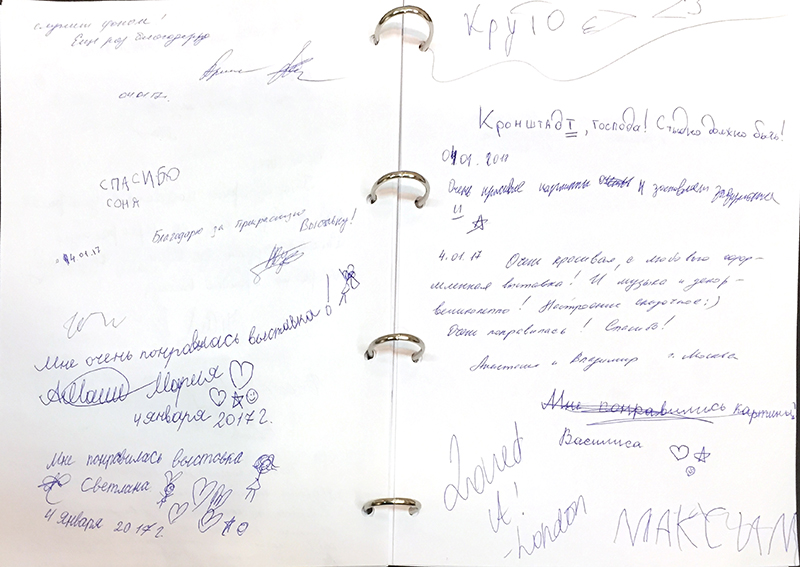 служит
Еще раз благодарю
04.01.17.
СПАСИБО
СОНА
Благодарю за прекрасную
выставку!
04.01.17
Мне очень понравилась выставка!
Мария
4 января 2017 г.
Мне понравилась выставка
Светлана
4 января 2017 г.
КРУТО
КРОНШТАДТ, господа! Стыдно должно быть!
04.01.2017
Очень красивые картины и заставляют задуматься
4.01.17 Очень красивая, с любовью офор-
мленная выставка! И музыка и декор -
великолепно! Настроение сказочное :)
Очень понравилась! Спасибо!
Анастасия и Владимир г. Москва
Мне понравились картины
Василиса
Loved
it!
- London
МАКСИМ